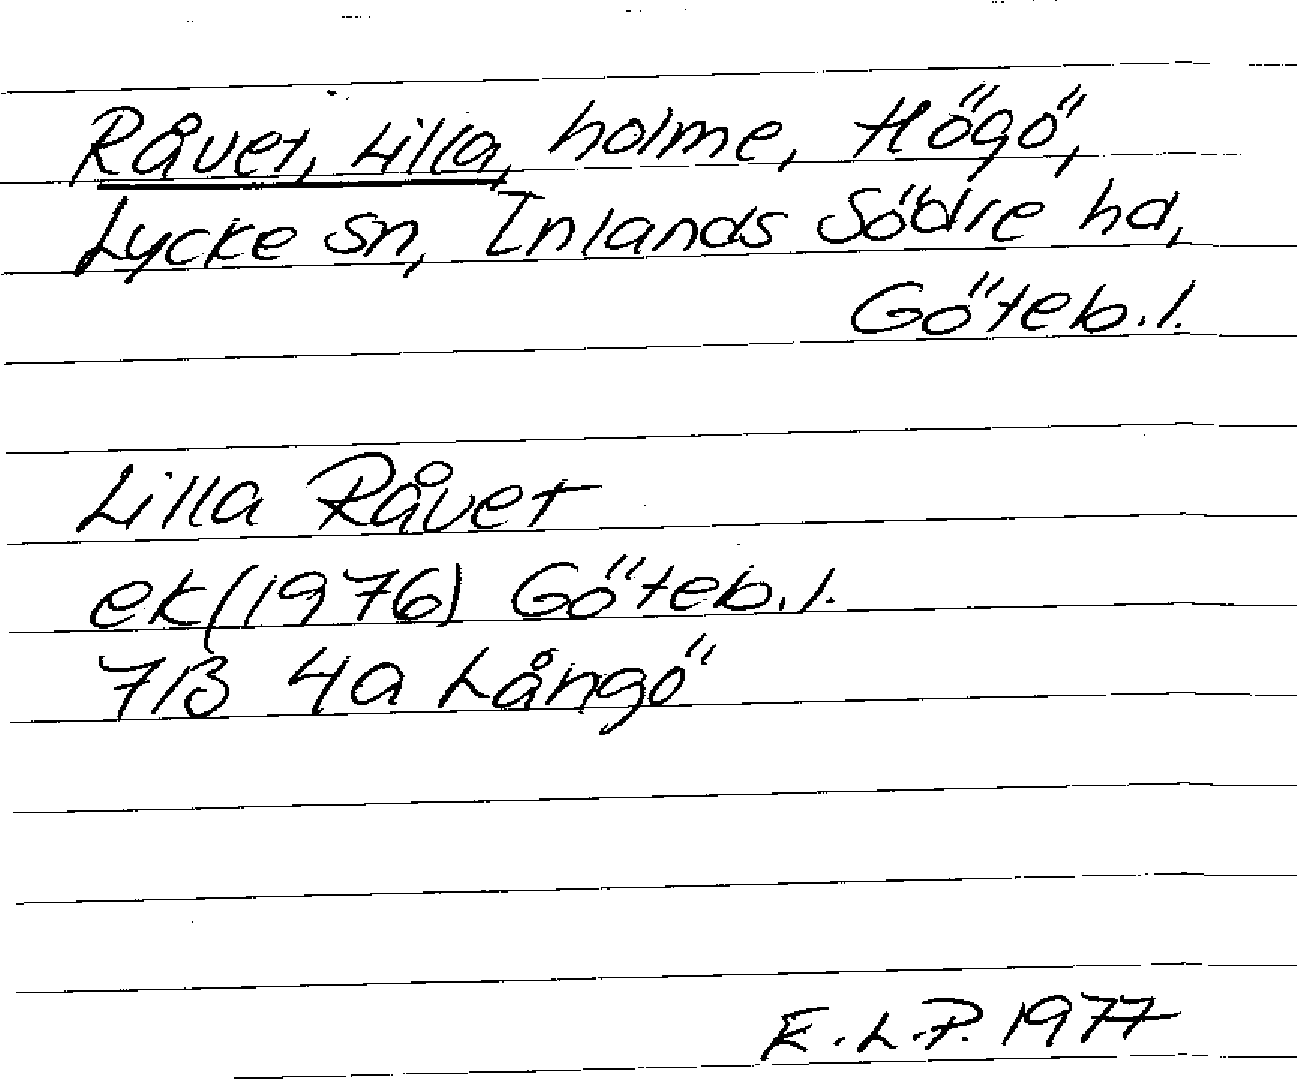 Råvet, Lilla, holme, Högö,
Lycke sn, Inlands Södre hd,
Göteb. l.
Lilla Råvet
ek (1976) Göteb. l.
7B 4a Långö
E.L.P. 1977